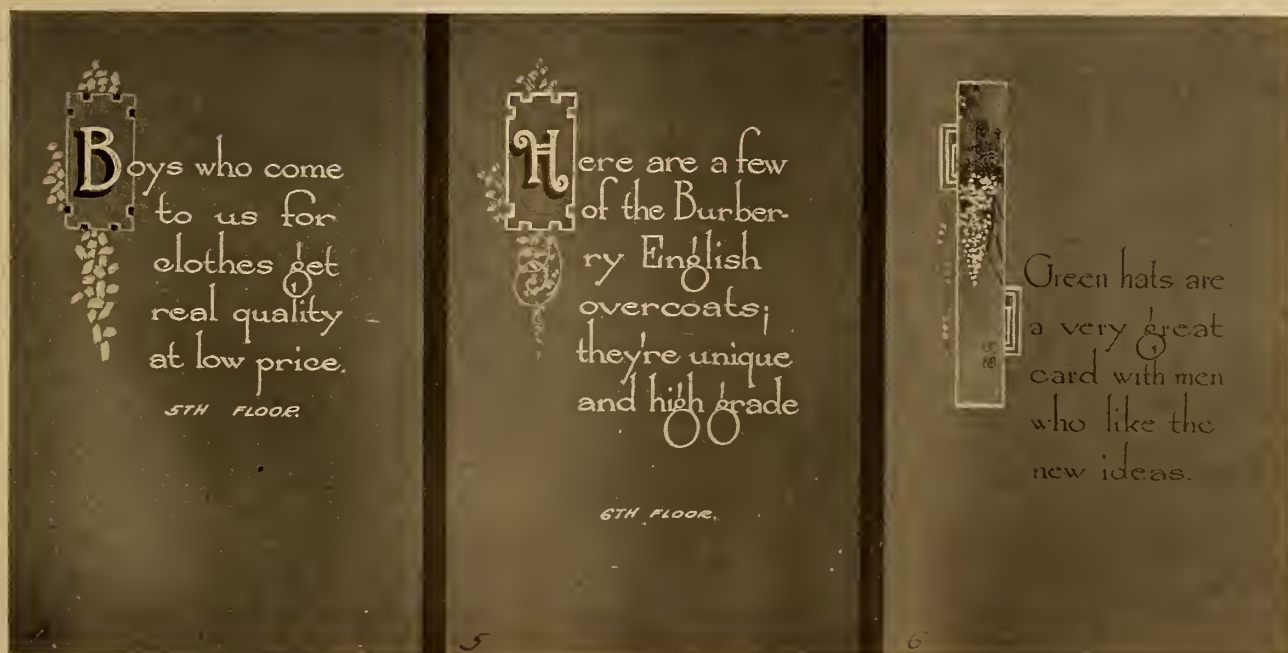 Boys who come
to us for
clothes get
real quality
at low price.
5TH FLOOR.
Here are a few
of the Burber-
ry English
overcoats;
they're unique
and high grade
6TH FLOOR.
5
Green hats are
a very great
card with men
who like the
new ideas.
6